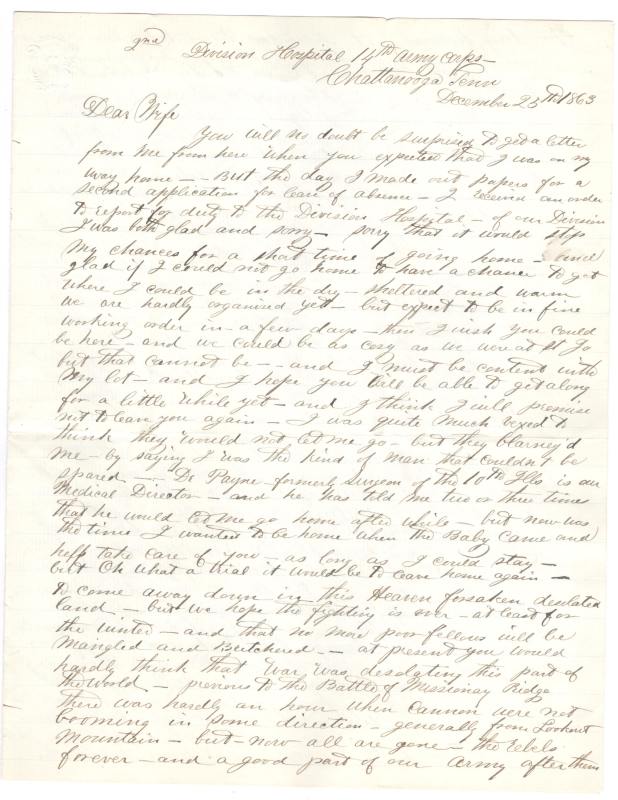 2nd Division Hospital 14th army corps -
Chattanooga Tenn
December 23th 1863
Dear Wife
You will no doubt be surprised to get a letter
from me from here when you expected that I was on my
way home - - But the day I made out papers for a
second application for leave of absence - I received an order
to report for duty to the Division Hospital - of our Division
I was both glad and sorry - sorry that it would stop
my chances for a short time of going home - and
glad if I could not go home to have a chance to get
where I could be in the dry - sheltered and warm
we are hardly organised yet - but expect to be in fine
working order in a few days - then I wish you could
be here - and we could be as cosy as we were at
but that cannot be - and I must be content with
my lot - and I hope you will be able to get along
for a little while yet - and I think I will promise
not to leave you again - I was quite much vexed to
think they would not let me go - but they blarney'd
me - by saying I was the kind of man that couldn't be
spared - Dr Payne - formerly Surgeon of the 10th Ills is our
Medical Director - and he has told me two or three times
that he would let me go home after while - but now was
the time I wanted to be home when the Baby came and
help take care of you - as long as I could stay -
but Oh what a trial it would be to leave home again -
to come away down in this Heaven forsaken desolated
land - but we hope the fighting is over - at least for
the winter - and that no more poor fellows will be
Mangled and Butchered - at present you would
hardly think that War was desolating this part of
the world - previous to the Battle of Missionary Ridge
there was hardly an hour when Cannon were not
booming in some direction - generally from Lookout
Mountain - but now all are gone - the Rebels
forever - and a good part of our army after them